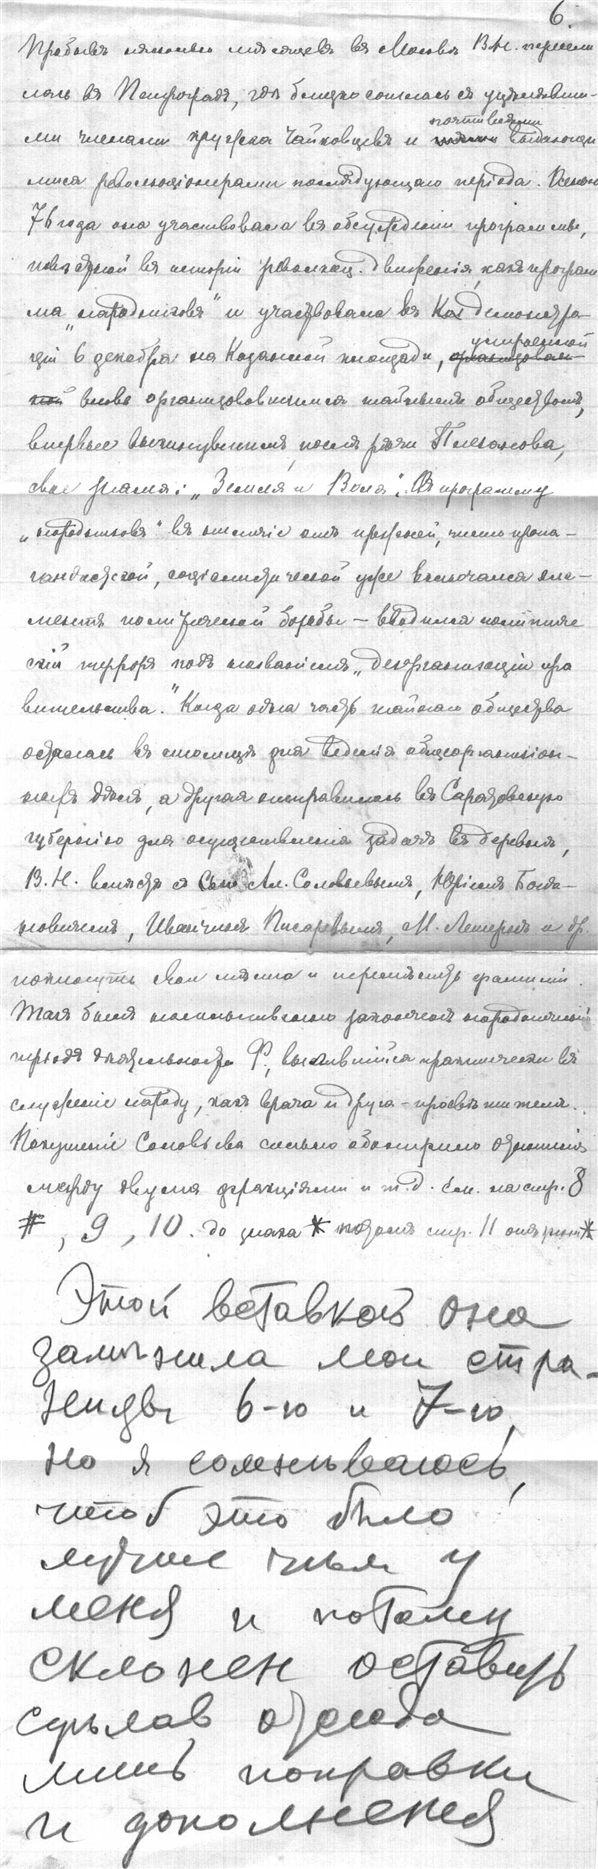 6.
Пробывъ несколько мѣсяцевъ въ Москвѣ В.Н. пересели
лась въ Петроградъ, гдѣ близко сошлась съ уцѣлѣвши-
ми членами кружка Чайковцевъ и почти всѣми выдающи
мися революціонерами послѣдующаго періода. Осенью
76 года она участвовала въ обсужденіи программы,
извѣстной въ исторіи революц. движенія, какъ програм
ма „народниковъ" и участвовала въ Каз демонстра-
ціи 6 декабря на Казанской площади, устроенной
вновь организовавшимся тайнымъ обществомъ,
впервые выкинувшимъ, послѣ рѣчи Плеханова,
свое знамя: „Земля и Воля". Въ программу
„народниковъ" въ отличіе отъ прежней, чисто пропа-
гандистской, соціалистической уже включался эле-
ментъ политической борьбы – вводился политиче
скій терроръ подъ названіемъ „дезорганизаціи пра
вительства." Когда одна часть тайнаго общества
осталась въ столицѣ для веденія общеорганизаціон-
ныхъ дѣлъ, а другая отправилась въ Саратовскую
губернію для осуществленія задачъ въ деревнѣ,
В.Н. вмѣстѣ съ Ал. Соловьевымъ, Юріемъ Богда-
новичемъ, Иванчинъ Писаревымъ, М. Лешернъ и др.
покинуть свои мѣста и перемѣнить фамиліи.
Такъ былъ насильственно законченъ народническій
періодъ дѣятельности Ф., вылившійся практически въ
служеніе народу, какъ врача и друга-просвѣтителя.
Покушеніе Соловьева сильно обострило отношенія
между двумя фракціями и т.д. см. на стр. 8
#, 9, 10. до знака * потомъ стр. 11 опять *
Этой вставкой она
заменила мои стра-
ницы 6-ю и 7-ю,
но я сомневаюсь,
чтоб это было
лучше чем у
меня и потому
склонен оставить
сделав отсюда
лишь поправки
и дополнения